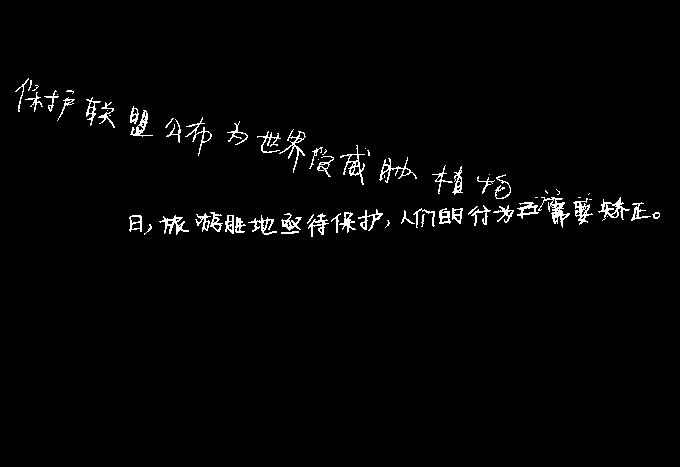 保护联盟公布为世界受威胁植物
日,旅游胜地亟待保护,人们的行为亟需要矫正。